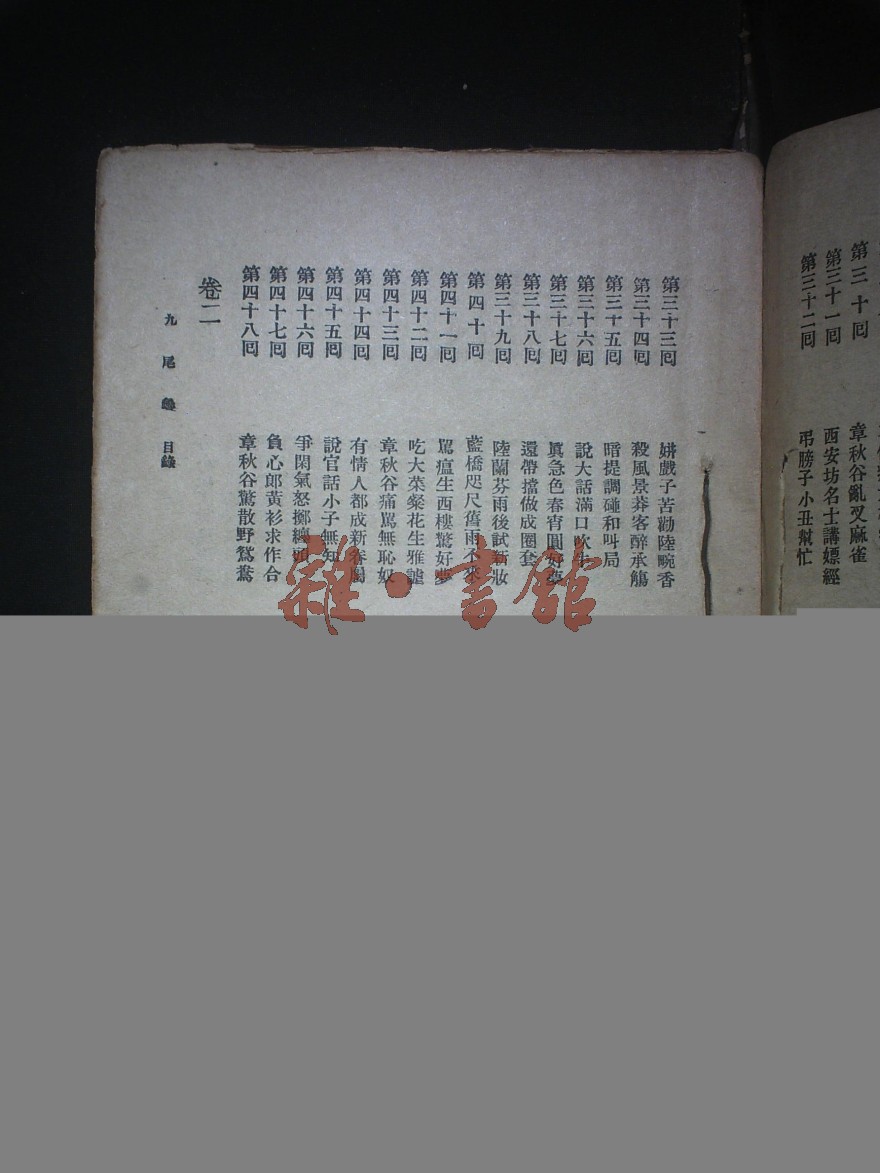 第三十回
第三十一回 西安坊名士講嫖經
第三十二回 弔膀子小丑幫忙
章秋谷亂叉麻雀
第三十三回 姘戲子苦勸陸畹香
第三十四回 殺風景莽客醉承觴
第三十五回 暗提調碰和叫局
第三十六回 說大話滿口吹牛
第三十七回 眞急色春宵圓好夢
第三十八回 還帶擋做成圈套
第三十九回 陸蘭芬雨後試新妝
第四十回 藍橋咫尺舊雨不來
第四十一回 罵瘟生西樓驚好夢
第四十二回 吃大菜粲花生雅謔
第四十三回 章秋谷痛罵無恥奴
第四十四回 有情人都成新眷屬
第四十五回 說官話小子無知
第四十六回 爭閑氣怒擲纏頭
第四十七回 負心郎黃衫求作合
第四十八回 章秋谷驚散野鴛鴦
卷二
九尾龜 目錄
雜·書館